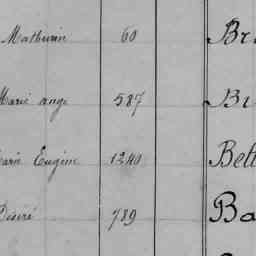 Mathurin 60 Br
Marie ange 587 Br
Marie Eugène 1240 Bell
Désiré 789 Ba